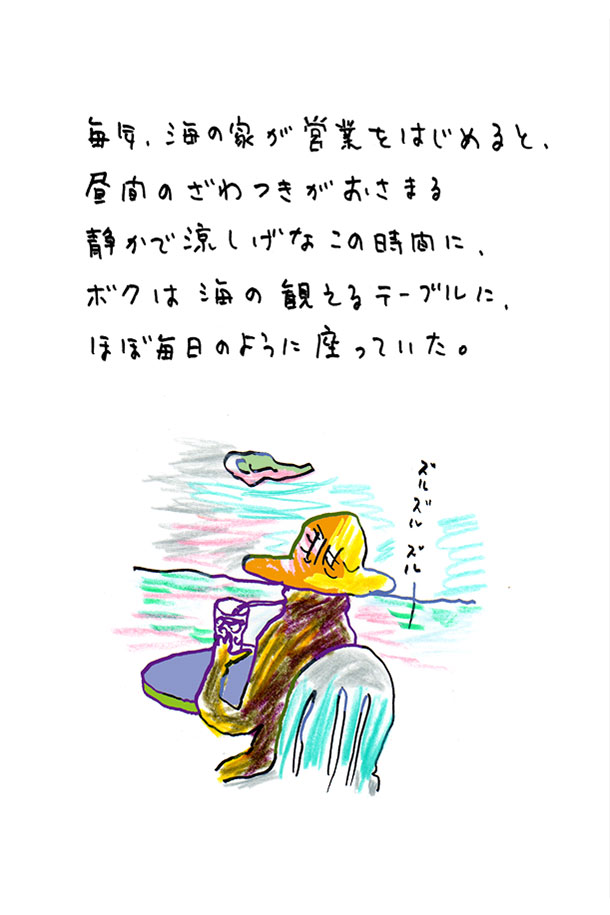 毎年、海の家が営業をはじめると、
昼間のざわつきがおさまる
静かで涼しげなこの時間に、
ボクは海の観えるテーブルに、
ほぼ毎日のように座っていた。
ズルズルズル